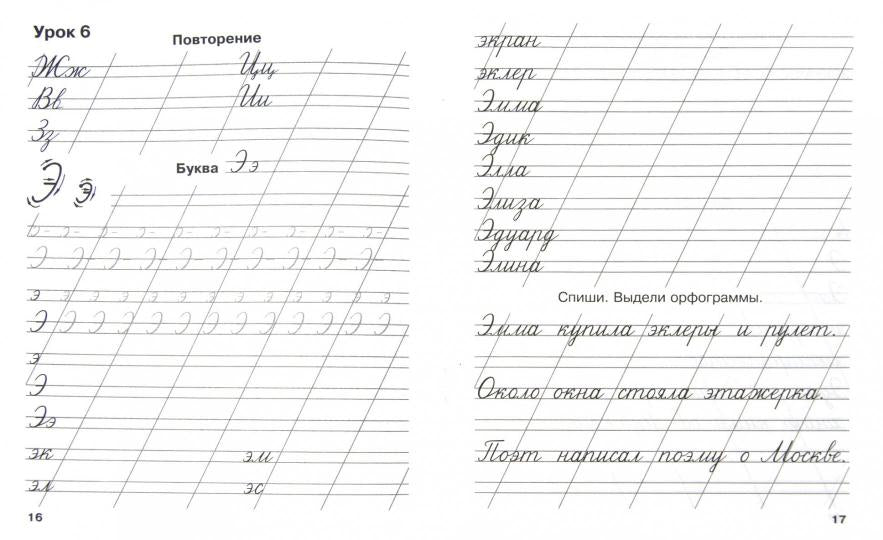 Урок 6
Повторение
Жж Цц
Вв Ии
Зз
Буква Ээ
Э э
э э э э э э э э э э э э э
Э Э Э Э Э Э Э Э Э Э Э Э Э
э
Э
Ээ
эк эм
эл эс
16
экран
эклер
Эмма
Эдик
Элла
Элиза
Эдуард
Элина
Спиши. Выдели орфограммы.
Эмма купила эклеры и рулет.
Около окна стояла этажерка.
Поэт написал поэму о Москве.
17